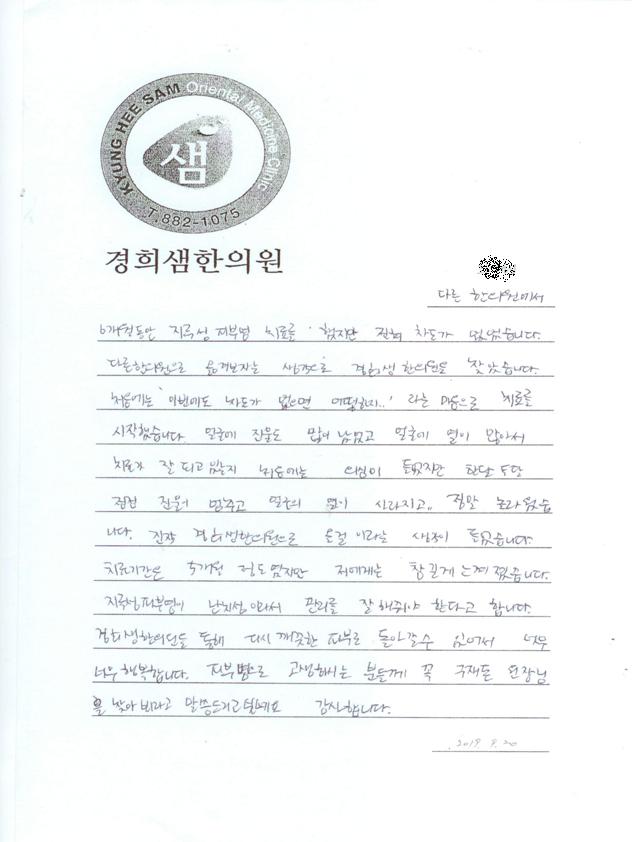 KYUNG HEE SAM Oriental Medicine Clinic
샘
T.882-1075
경희샘한의원
다른 한의원에서
6개월동안 지루성 피부염 치료를 했지만 전혀 차도가 없었습니다.
다른한의원으로 옮겨보자는 생각으로 경희샘한의원을 찾았습니다.
처음에는 '이번에도 차도가 없으면 어떻하지..' 라는 마음으로 치료를
시작했습니다. 얼굴에 진물도 많이 났었고 얼굴에 열이 많아서
치료가 잘 되고 있는지 처음에는 의심이 들었지만 한달 두달
점점 진물이 멈추고 얼굴의 열이 사라지고.. 정말 놀라웠습
니다. 진작 경희샘한의원으로 올걸 이라는 생각이 들었습니다.
치료기간은 5개월 정도 였지만 저에게는 참 길게 느껴졌습니다.
지루성피부염이 난치성이라서 관리를 잘 해줘야 한다고 합니다.
경희샘한의원을 통해 다시 깨끗한 피부로 돌아갈수 있어서 너무
너무 행복합니다. 피부병으로 고생하시는 분들께 꼭 구재돈 원장님
을 찾아 뵈라고 말씀드리고 감사합니다.
2019. 9. 20